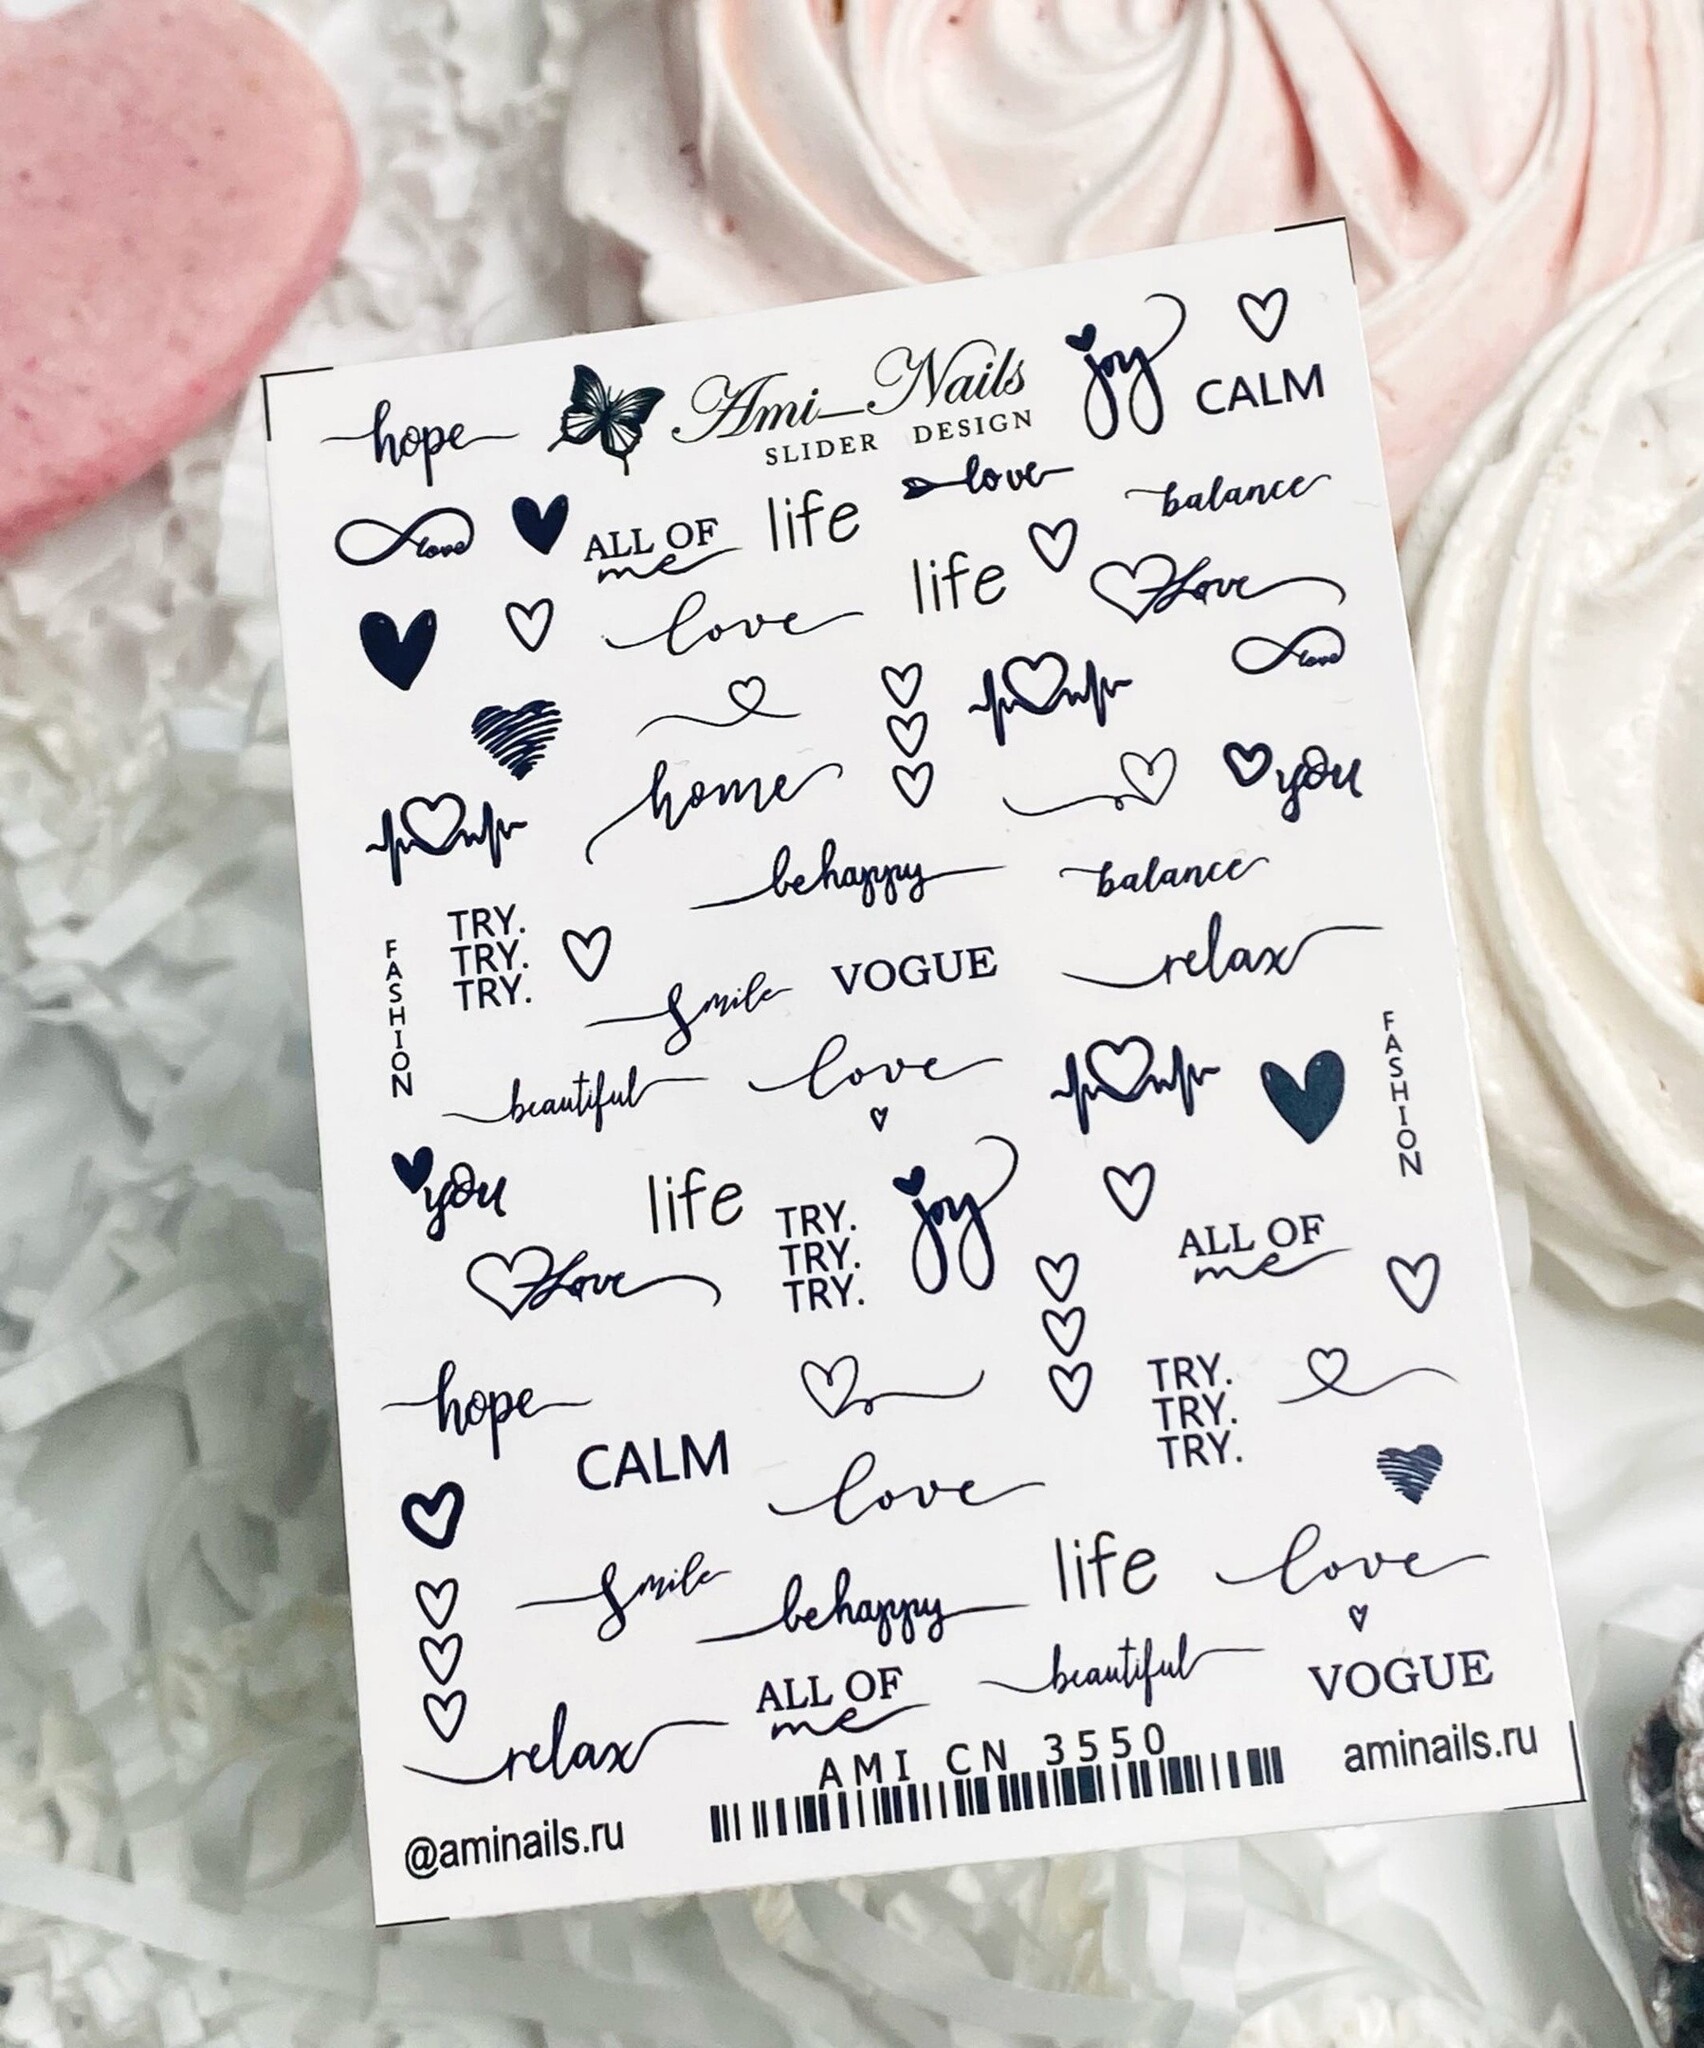 hope
Ami_Nails
SLIDER DESIGN
joy
CALM
love
ALL OF
me
life
love
balance
love
life
Love
love
home
you
be happy
balance
FASHION
TRY.
TRY.
TRY.
smile
VOGUE
relax
beautiful
love
FASHION
you
life
TRY.
TRY.
TRY.
joy
ALL OF
me
Love
hope
CALM
love
TRY.
TRY.
TRY.
smile
be happy
life
love
relax
ALL OF
me
beautiful
VOGUE
AMI CN 3550
@aminails.ru
aminails.ru